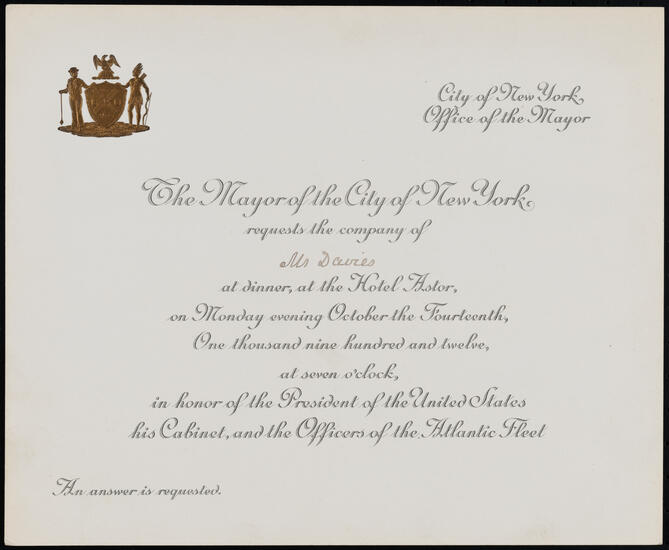 City of New York
Office of the Mayor
The Mayor of the City of New York
requests the company of
Mr Davies
at dinner, at the Hotel Astor,
on Monday evening October the Fourteenth,
One thousand nine hundred and twelve,
at seven o'clock,
in honor of the President of the United States
his Cabinet, and the Officers of the Atlantic Fleet
An answer is requested.